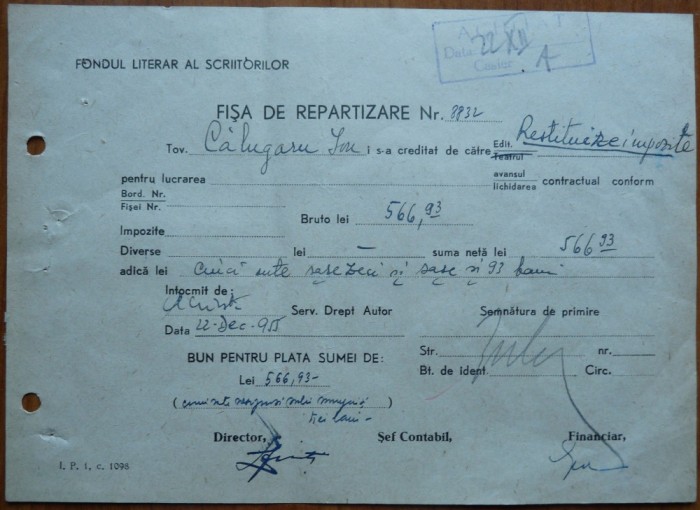 ACHITAT
Data 22 XII
Casier
FONDUL LITERAR AL SCRIITORILOR
FIŞA DE REPARTIZARE Nr. 8832
Tov. Călugaru Ion i s-a creditat de către Edit. Teatrul Restituire impozite
pentru lucrarea avansul lichidarea contractual conform
Bord. Nr.
Fişei Nr.
Bruto lei 566,93
Impozite
Diverse lei — suma netă lei 566 93
adică lei cinci sute șasezeci și șase și 93 bani
Intocmit de:
Serv. Drept Autor Semnătura de primire
Data 22-Dec-955
BUN PENTRU PLATA SUMEI DE:
Str. nr.
Bt. de ident. Circ.
Lei 566,93-
Director, Şef Contabil, Financiar,
I. P. 1, c. 1098